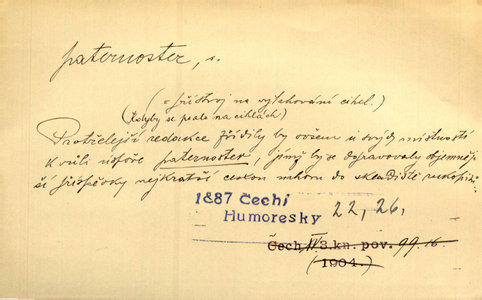 paternoster, s.
(= přístroj na vytahování cihel.)
(Kdyby se psalo na cihlách)
Protřelejší redakce zřídily by ovšem u svých místností
k vůli úspoře paternoster, jímž by se dopravovaly objemněj-
ší příspěvky nejkratší cestou nahoru do skladiště rukopisů.
1887 Čechi
Humoresky 22, 26,
Čech, IV S. kn. pov. 99. 16.
(1904.)